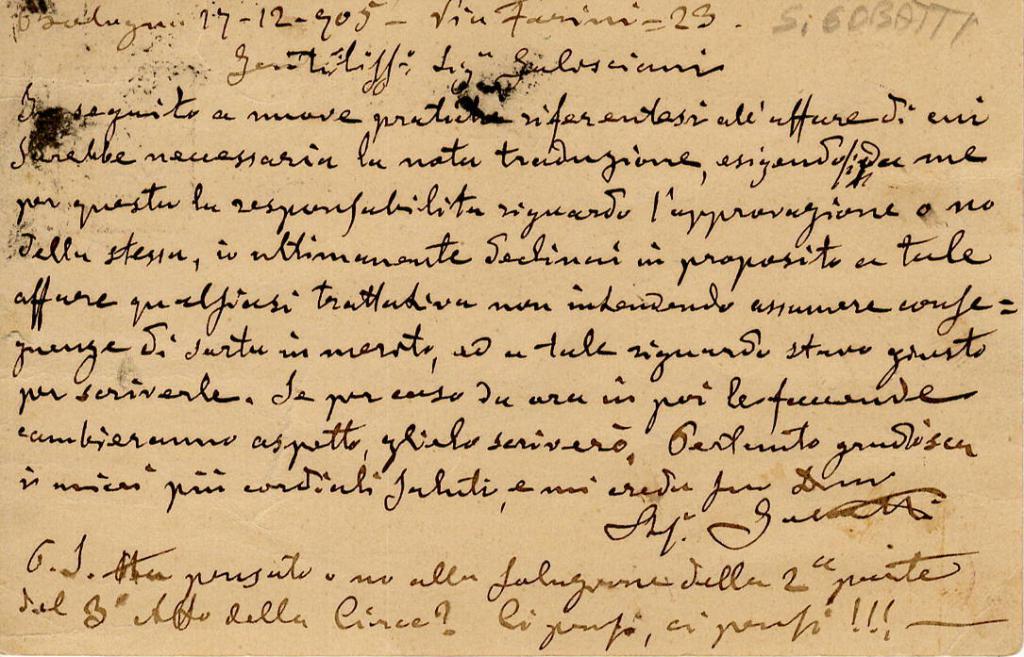 Bologna 17-12-905 - Via Farini = 23.
S. GOBATTI
Gentiliss: Sig.
In seguito a nuove pratiche riferentesi all'affare di cui
sarebbe necessaria la nota traduzione, esigendosi da me
per questa la responsabilità riguardo l'approvazione o no
della stessa, io ultimamente declinai in proposito a tale
affare qualsiasi trattativa non intendendo assumere conse=
guenze di sorta in merito, ed a tale riguardo stavo giusto
per scriverle. Se per caso da ora in poi le faccende
cambieranno aspetto, glielo scriverò. Pertanto gradisca
i miei più cordiali saluti, e mi creda suo Dmo
Gobatti
P.S. Ha pensato o no alla soluzione della 2a parte
del 3o Atto della Circe? Ci pensi, ci pensi!!!